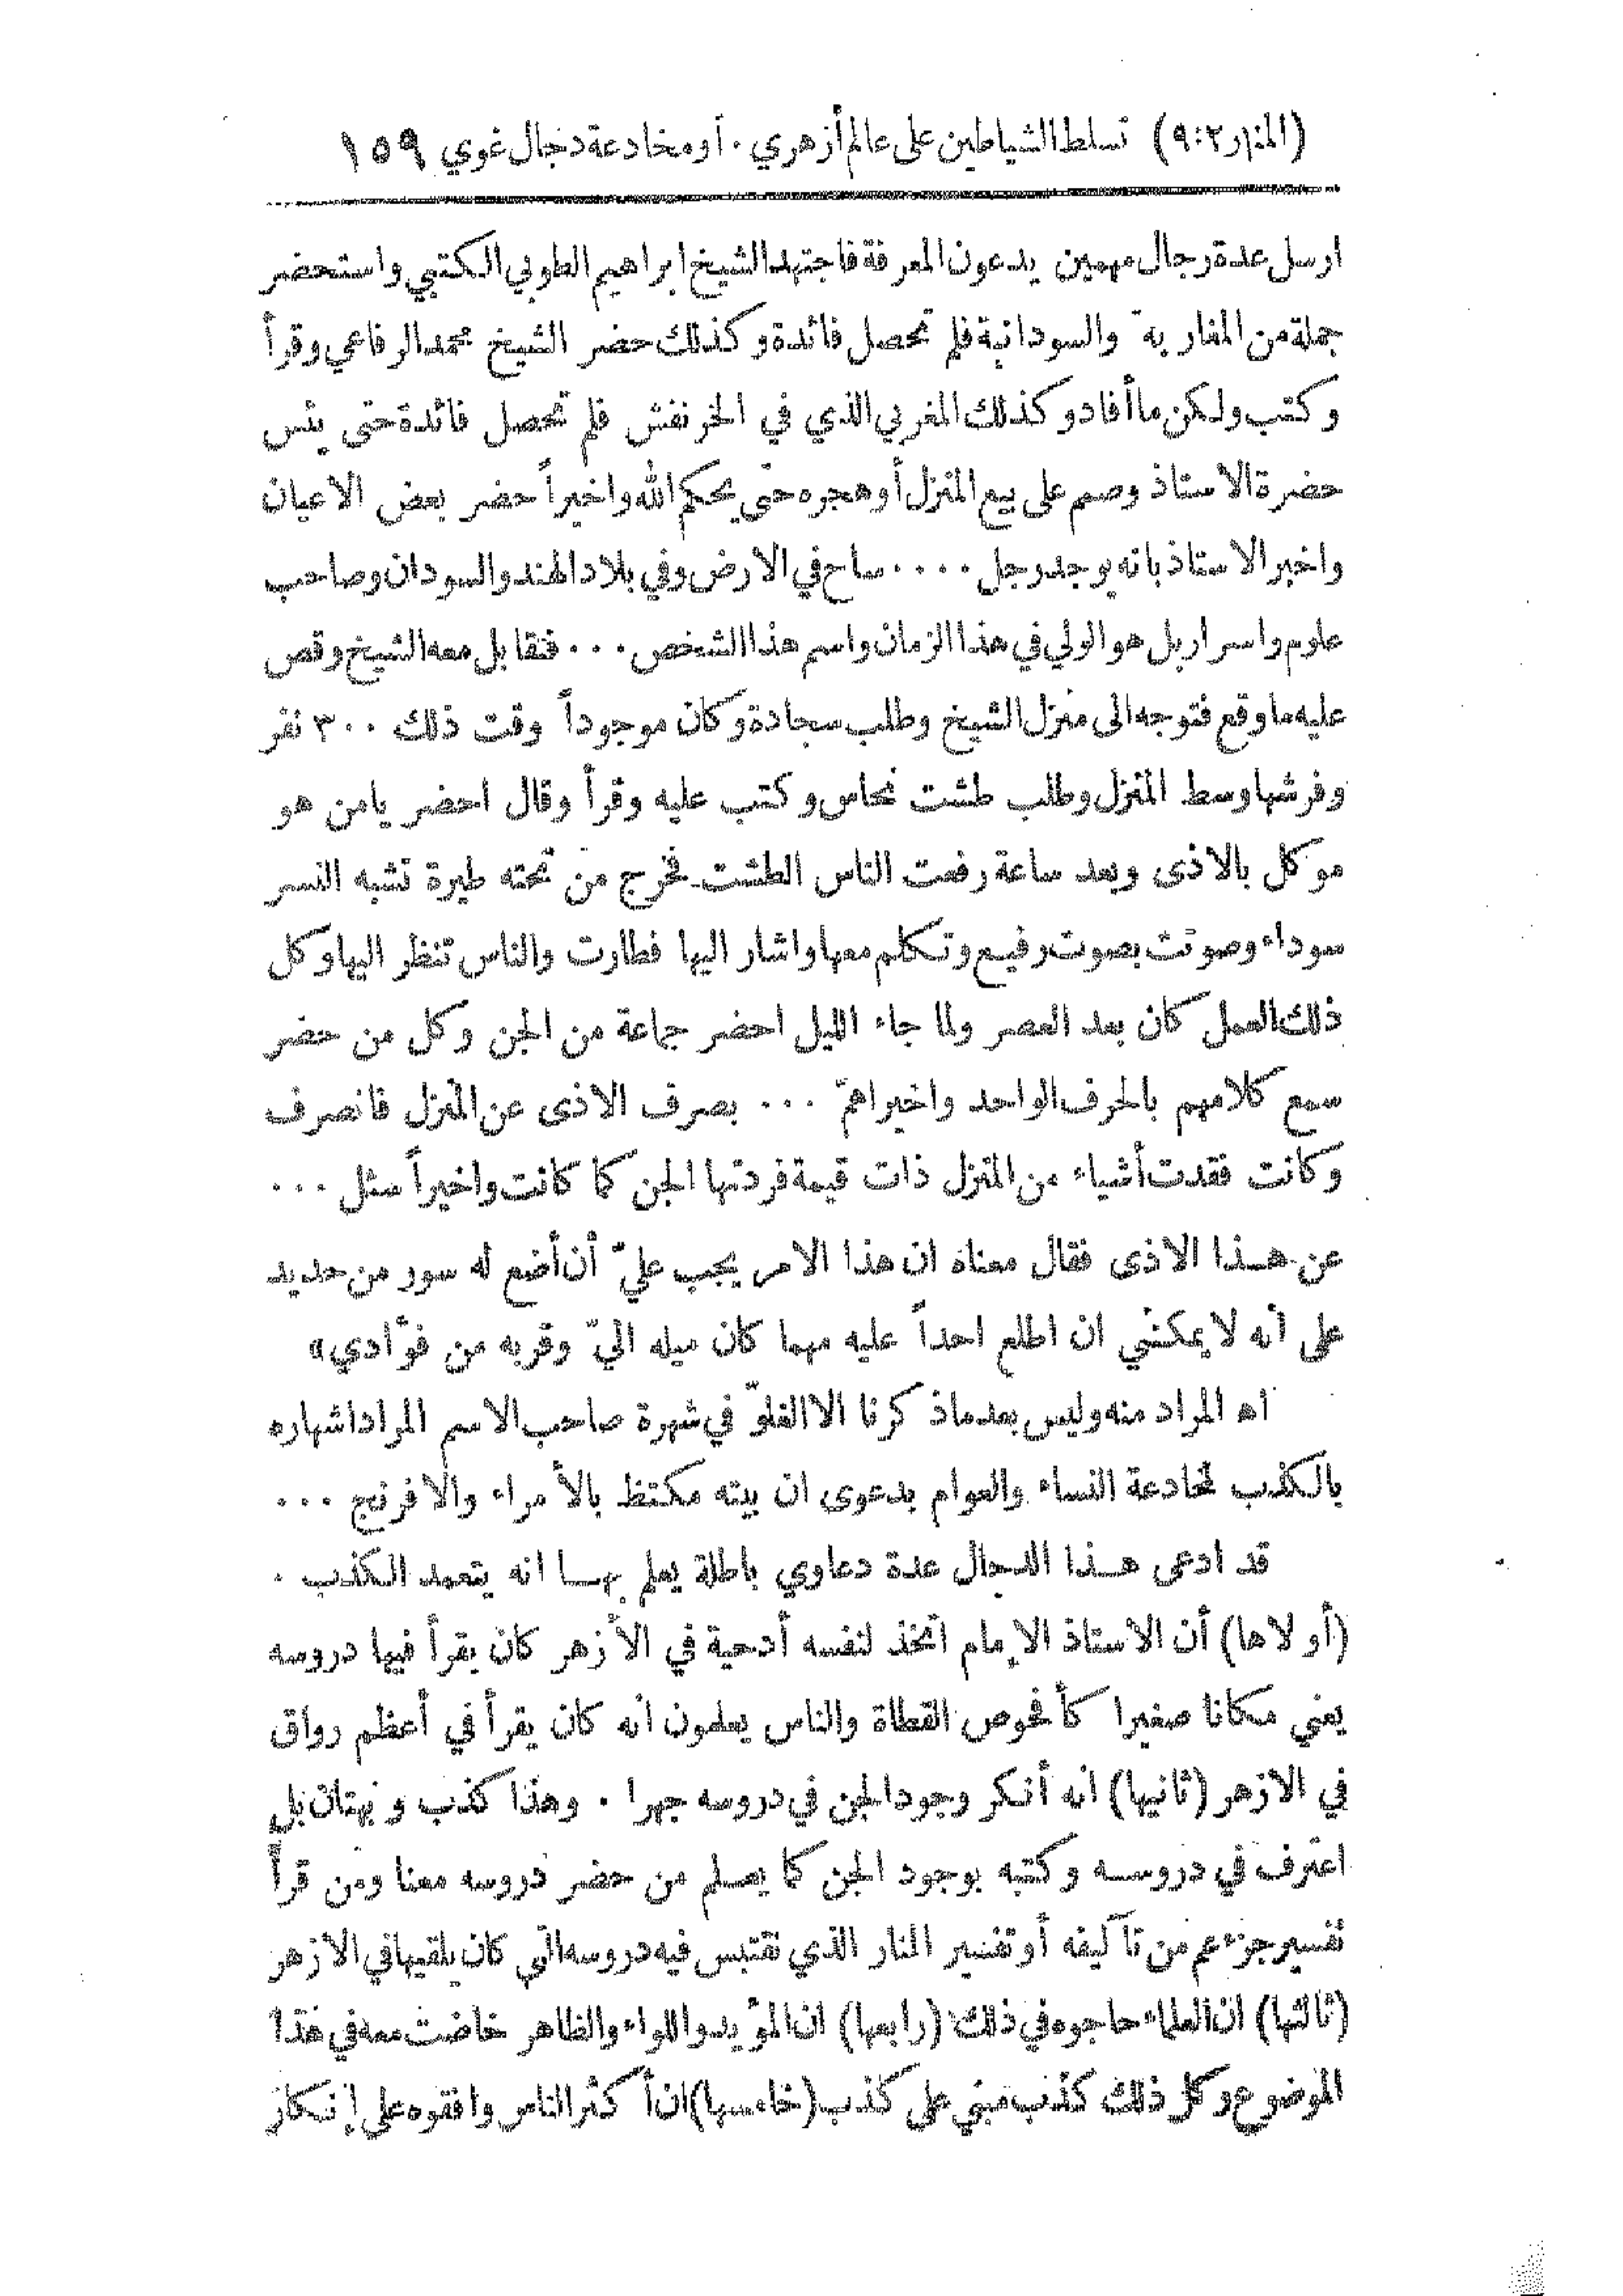 (المنار ٢ : ٩) تسلط الشياطين على عالم أزهري . أو مخادعة دجال غوي ١٥٩
ارسل عدة رجال مهمين يدعون المعرفة فاجتهد الشيخ ابراهيم الطوبي الكتبي واستحضر
جملة من المغاربه والسودانية فلم تحصل فائدة وكذلك حضر الشيخ محمد الرفاعي وقرأ
وكتب ولكن ما أفاد وكذلك المغربي الذي في الخرنفش فلم تحصل فائدة حتى يئس
حضرة الاستاذ وصمم على بيع المنزل أو هجره حتى يحكم الله واخيراً حضر بعض الاعيان
واخبر الاستاذ بانه يوجد رجل .... ساح في الارض وفي بلاد الهند والسودان وصاحب
علوم واسرار بل هو الولي في هذا الزمان واسم هذا الشخص ... فتقابل معه الشيخ وقص
عليه ما وقع فتوجه الى منزل الشيخ وطلب سجادة وكان موجوداً وقت ذلك ٣٠٠ نفر
وفرشها وسط المنزل وطلب طشت نحاس وكتب عليه وقرأ وقال احضر يا من هو
موكل بالاذى وبعد ساعة رفعت الناس الطشت فخرج من تحته طيرة تشبه النسر
سوداء وصوتت بصوت رفيع وتكلم معها واشار اليها فطارت والناس تنظر اليها وكل
ذلك العمل كان بعد العصر ولما جاء الليل احضر جماعة من الجن وكل من حضر
سمع كلامهم بالحرف الواحد واخبراهم ... بصرف الاذى عن المنزل فانصرف
وكانت فقدت أشياء من المنزل ذات قيمة فردتها الجن كما كانت واخيراً سئل ...
عن هـذا الاذى فقال معناه ان هذا الامر يجب عليّ أن أضع له سور من حديد
على أنه لا يمكنني ان اطلع احداً عليه مهما كان ميله اليّ وقربه من فؤادي »
اه المراد منه وليس بعد ما ذكرنا الا الغلوّ في شهرة صاحب الاسم المراد اشهاره
بالكذب لمخادعة النساء والعوام بدعوى ان بيته مكتظ بالأمراء والافرنج ...
قد ادعى هـذا الدجال عدة دعاوي باطلة يعلم بهـا انه يتعمد الكذب .
(أولاها) أن الاستاذ الإمام اتخذ لنفسه أدحية في الأزهر كان يقرأ فيها دروسه
يعني مكانا صغيرا كأفحوص القطاة والناس يعلمون انه كان يقرأ في أعظم رواق
في الازهر (ثانيها) انه أنكر وجود الجن في دروسه جهرا . وهذا كذب وبهتان بل
اعترف في دروسـه وكتبه بوجود الجن كما يعـلم من حضر دروسه معنا ومن قرأ
تفسير جزء عم من تآليفه أو تفسير المنار الذي نقتبس فيه دروسه التي كان يلقيها في الازهر
(ثالثها) ان العلماء حاجوه في ذلك (رابعها) ان المؤيد واللواء والظاهر خاضت معه في هذا
الموضوع وكل ذلك كذب مبني على كذب (خامسها) ان أكثر الناس وافقوه على إنكار